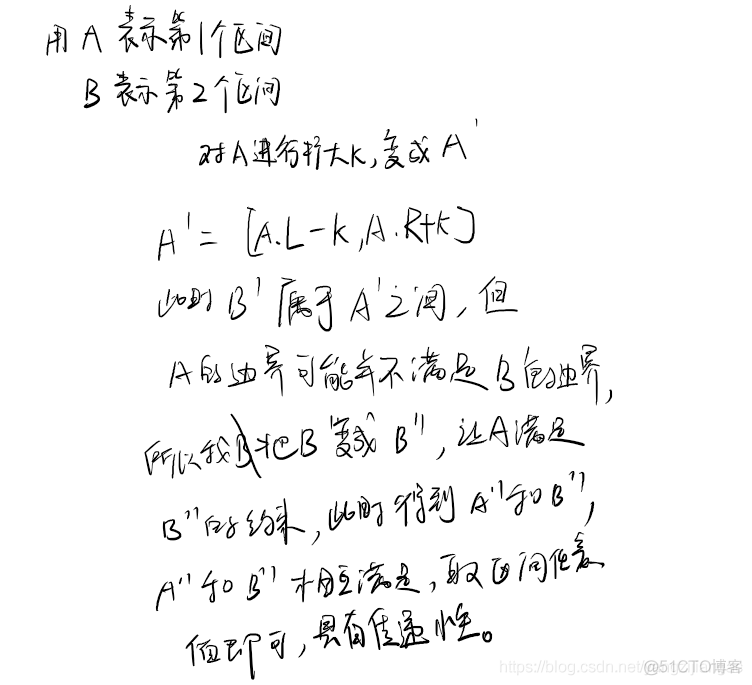 用 A 表示第1个区间
B 表示第2个区间
对A进行扩大K,变成 A'
A' = [A.L-k,A.R+k]
此时 B' 属于 A'之间,但
A的边界可能并不满足B的边界,
所以我把B变成 B'',让A满足
B''的约束,此时得到 A''和B'',
A''和B''相互满足,取区间任意
值即可,具有传递性。
https://blog.csdn.net/
@51CTO博客